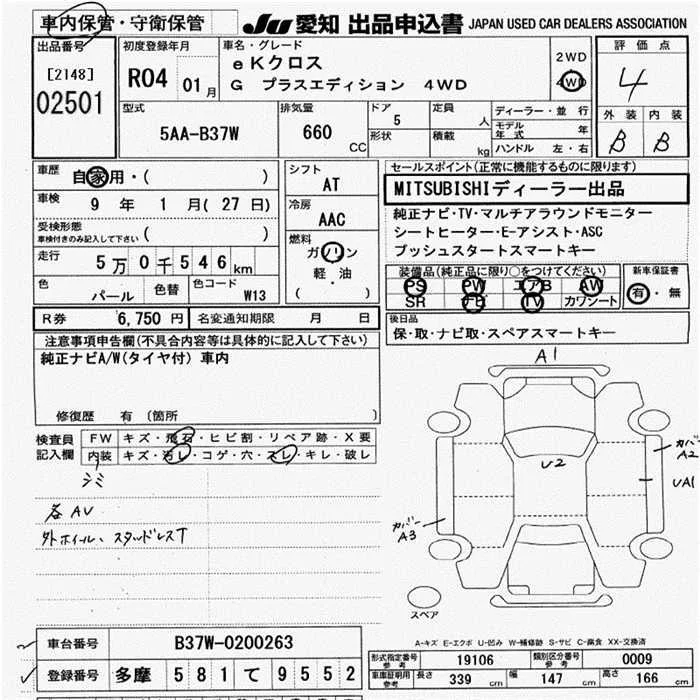 車内保管・守衛保管
JU 愛知 出品申込書 JAPAN USED CAR DEALERS ASSOCIATION
出品番号
[2148]
02501
初度登録年月
R04 01 月
車名・グレード
eKクロス
G プラスエディション 4WD
2WD
4WD
評価点
4
外装 内装
B B
型式
5AA-B37W
排気量
660 CC
ドア
5
形状
定員
人
積載
kg
ディーラー・並行
モデル年式 年
ハンドル 左・右
車歴
自家用・( )
車検
9 年 1 月( 27 日)
受検形態
車検付きのみ記入して下さい ( )
走行
5万0千546km
色
パール
色替
色コード
W13
シフト
AT
冷房
AAC
燃料
ガソリン
軽・油
( )
セールスポイント(正常に機能するものに限ります)
MITSUBISHIディーラー出品
純正ナビ・TV・マルチアラウンドモニター
シートヒーター・E-アシスト・ASC
プッシュスタートスマートキー
装備品(純正品に限り○をつけてください)
PS PW エアB AW
SR ナビ TV カワシート
新車保証書
有・無
R券 6,750 円 名変通知期限 月 日
後日品
保・取・ナビ取・スペアスマートキー
注意事項申告欄(不具合内容等は具体的に記入して下さい)
純正ナビA/W(タイヤ付) 車内
修復歴 有 (箇所 )
検査員記入欄
FW キズ・飛石・ヒビ割・リペア跡・X要
内装 キズ・汚レ・コゲ・穴・スレ・キレ・破レ
シミ
各AV
外ホイール、スタッドレスT
A1
U2
カバー A2
UA1
カバー A3
スペア
A-キズ E-エクボ U-凹み W-補修跡 S-サビ C-腐食 XX-交換済
車台番号 B37W-0200263
登録番号 多摩 581 て 9552
型式指定番号 参考 19106 類別区分番号 参考 0009
車庫証明用 参考 長さ 339 cm 幅 147 cm 高さ 166 cm